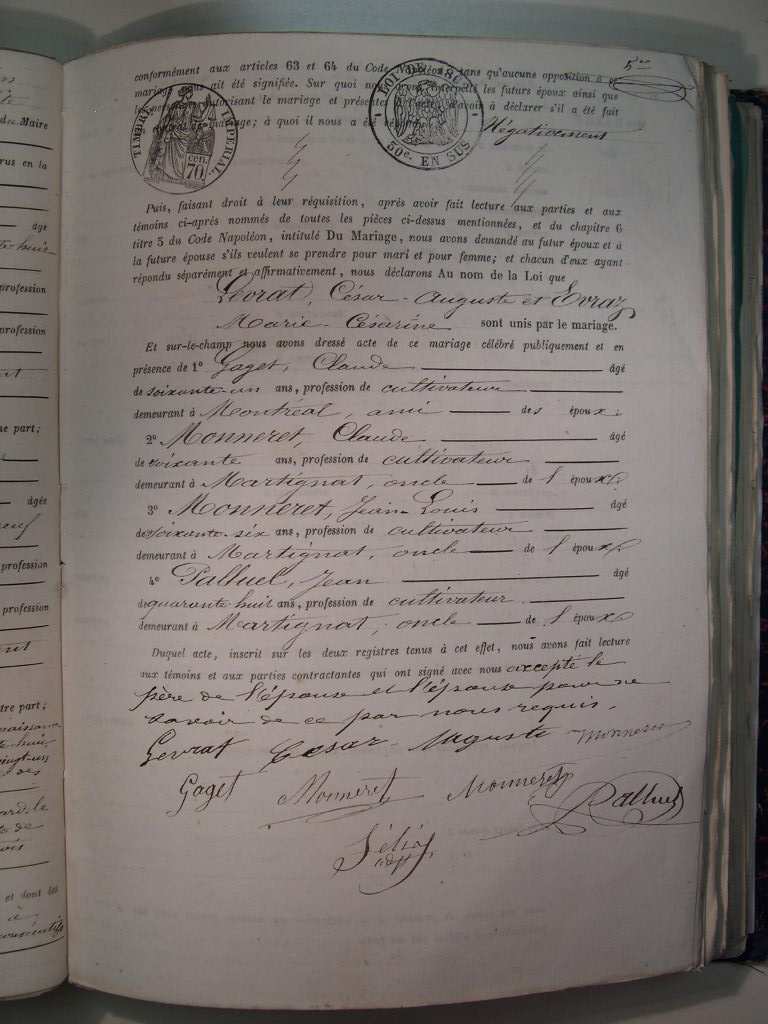 5me
conformément aux articles 63 et 64 du Code Napoléon, sans qu'aucune opposition à ce
mariage nous ait été signifiée. Sur quoi nous avons interpellé les futurs époux ainsi que
les personnes autorisant le mariage et présentes à l'acte, d'avoir à déclarer s'il a été fait
de mariage; à quoi il nous a été répondu Négativement
TIMBRE IMPÉRIAL
70 cen.
LOI DE
50c. EN SUS
Puis, faisant droit à leur réquisition, après avoir fait lecture aux parties et aux
témoins ci-après nommés de toutes les pièces ci-dessus mentionnées, et du chapitre 6
titre 5 du Code Napoléon, intitulé Du Mariage, nous avons demandé au futur époux et à
la future épouse s'ils veulent se prendre pour mari et pour femme; et chacun d'eux ayant
répondu séparément et affirmativement, nous déclarons Au nom de la Loi que
Levrat, César-Auguste et Evraz
Marie-Césarine sont unis par le mariage.
Et sur-le-champ nous avons dressé acte de ce mariage célébré publiquement et en
présence de 1° Gaget, Claude âgé
de soixante-un ans, profession de cultivateur
demeurant à Montréal, ami des époux.
2° Monneret, Claude âgé
de soixante ans, profession de cultivateur
demeurant à Martignat, oncle de l'époux
3° Monneret, Jean-Louis âgé
de soixante-six ans, profession de cultivateur
demeurant à Martignat, oncle de l'époux
4° Palluel, Jean âgé
de quarante huit ans, profession de cultivateur
demeurant à Martignat, oncle de l'époux
Duquel acte, inscrit sur les deux registres tenus à cet effet, nous avons fait lecture
aux témoins et aux parties contractantes qui ont signé avec nous excepté le
père de l'épouse et l'épouse pour ne
savoir de ce par nous requis.
Levrat César-Auguste Monneret
Gaget Monneret Monneret Palluel
Sélix
adjt